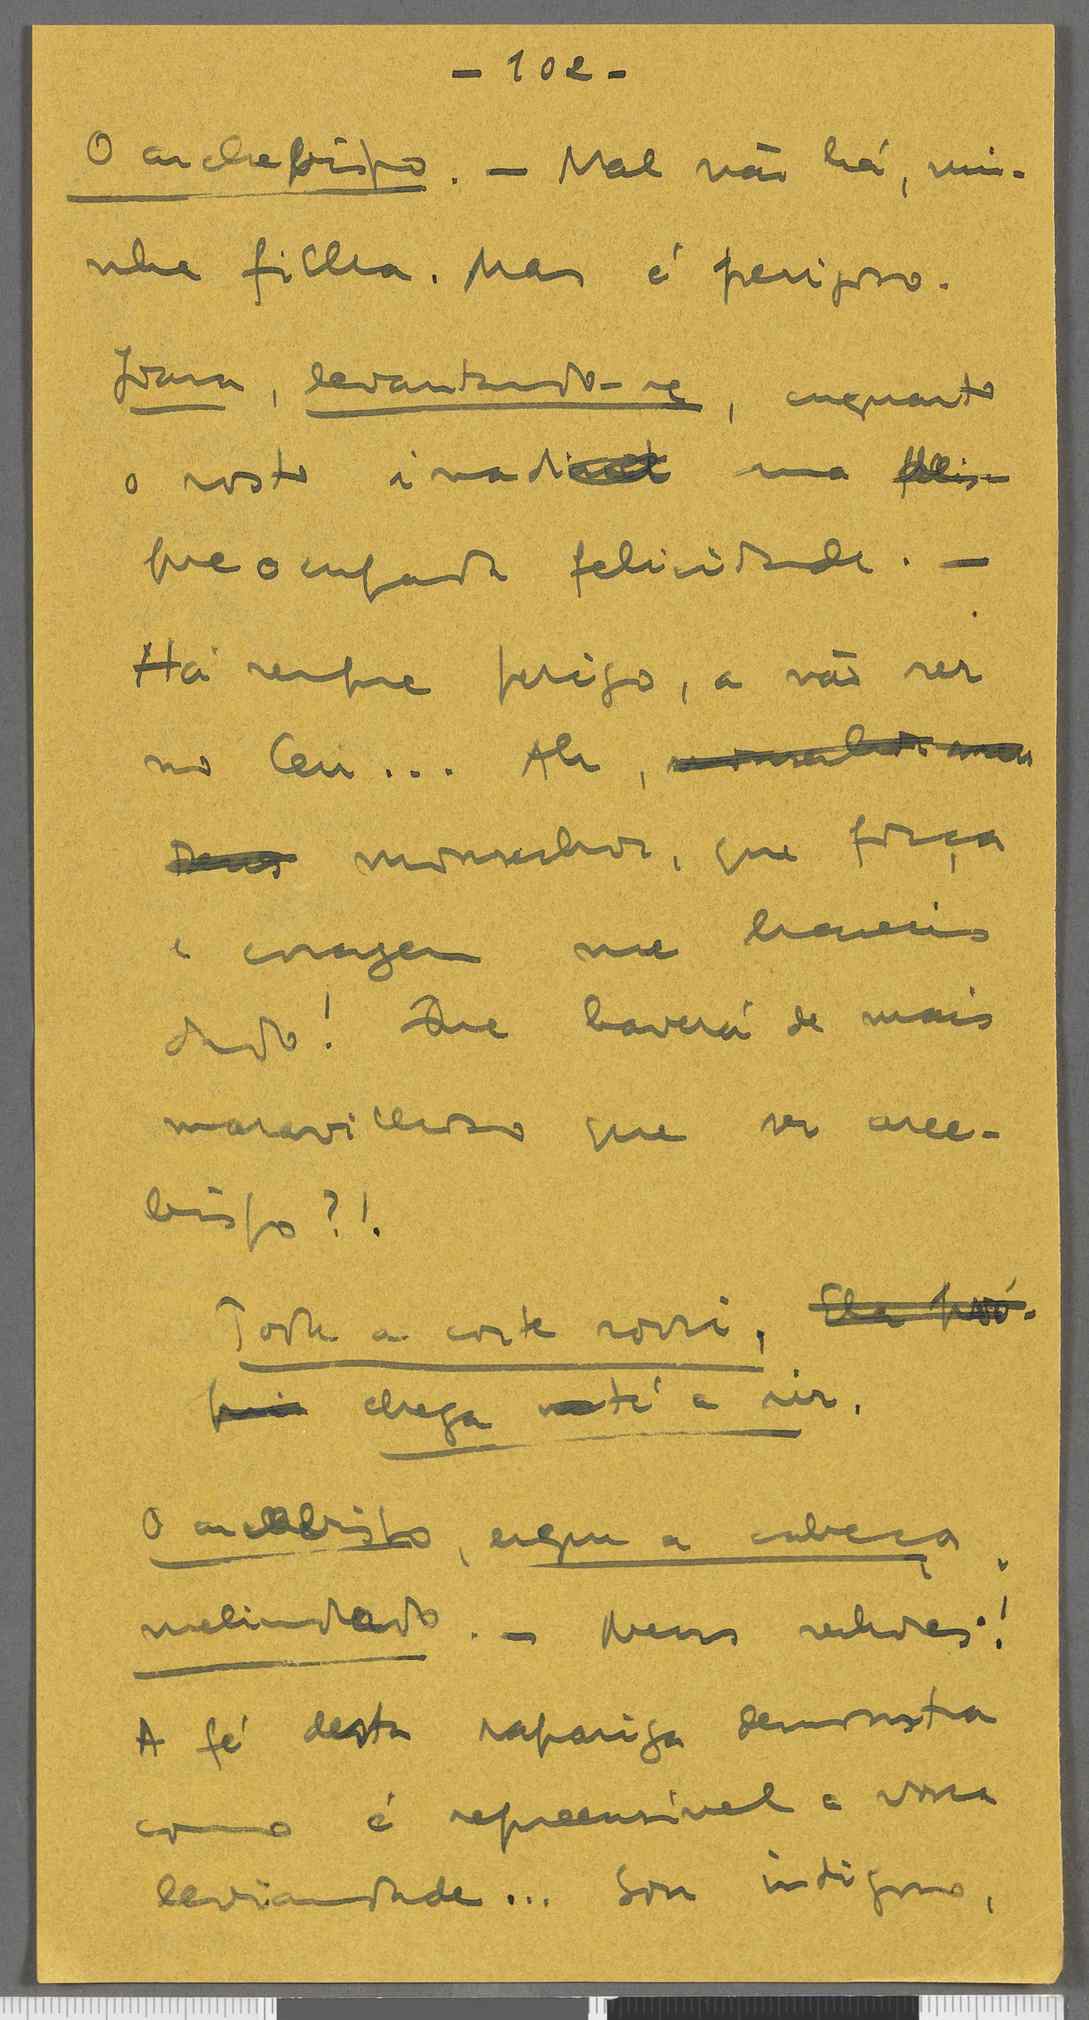 - 102 -
O archebispo. - Mal não há, mi-
nha filha. Mas é perigoso.
Joana, levantando-se, enquanto
o rosto irradia uma
preocupada felicidade. -
Há sempre perigo, a não ser
no Ceu... Ah, monsenhor meu
Deus monsenhor, que força
e coragem me haveis
dado! Que haverá de mais
maravilhoso que ser arce-
bispo?!
Toda a corte sorri, Ela pró-
pria chega até a rir.
O arcebispo, ergue a cabeça,
melindrado. - Meus senhores!
A fé desta rapariga demonstra
como é repreensível a vossa
leviandade... Sou indigno,